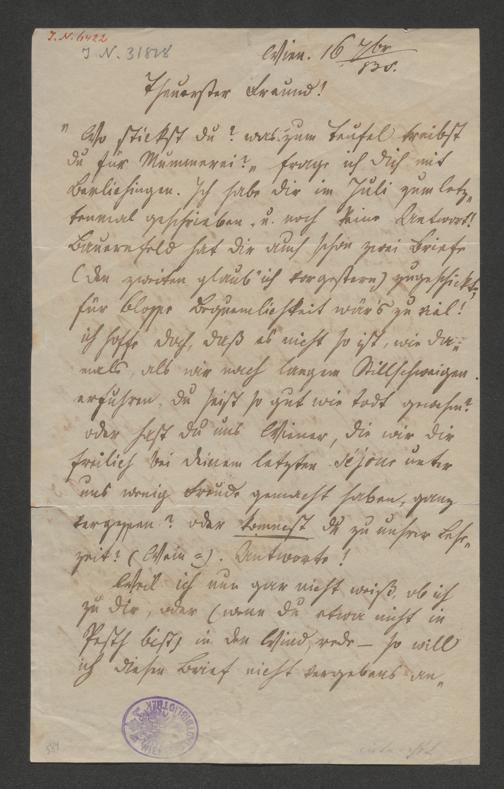 J. N. 6422
J. N. 31828
Wien. 16 7br
835.
Theuerster Freund!
"Wo stickst du? was zum Teufel treibst
du für Mummerei?„ frage ich dich mit
Berlichingen. Ich habe dir im Juli zum letz=
tenmal geschrieben u. noch keine Antwort!
Bauernfeld hat dir auch schon zwei Briefe
(den zweiten glaub' ich vorgestern) zugeschickt;
für bloße Bequemlichkeit wär's zu viel!
ich hoffe doch, daß es nicht so ist, wie da=
mals, als wir nach langem Stillschweigen
erfuhren, du seist so gut wie todt gewesen?
oder hast du uns Wiener, die wir dir
freilich bei deinem letzten Séjour unter
uns wenig Freude gemacht haben, ganz
vergessen? oder kommest du zu unsrer Lese=
zeit? (Wein=). Antworte!
Weil ich nun gar nicht weiß, ob ich
zu dir, oder (wenn du etwa nicht in
Pesth bist) in den Wind rede — so will
ich diesen Brief nicht vergebens an=